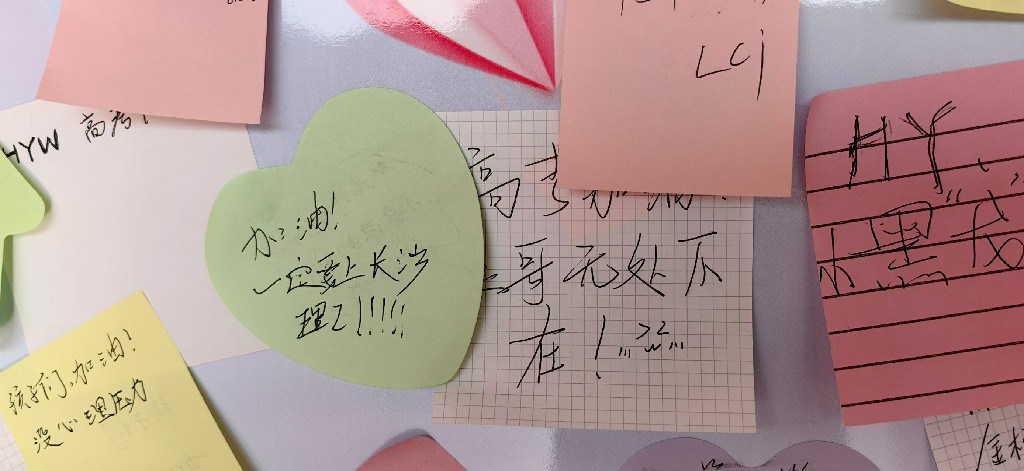 LCj
HYW 高考!
加油!
一定要上长沙
理工!!!!
高考加油!
哥无处不
在!
HY
小黑“成”
孩子们,加油!
没心理压力